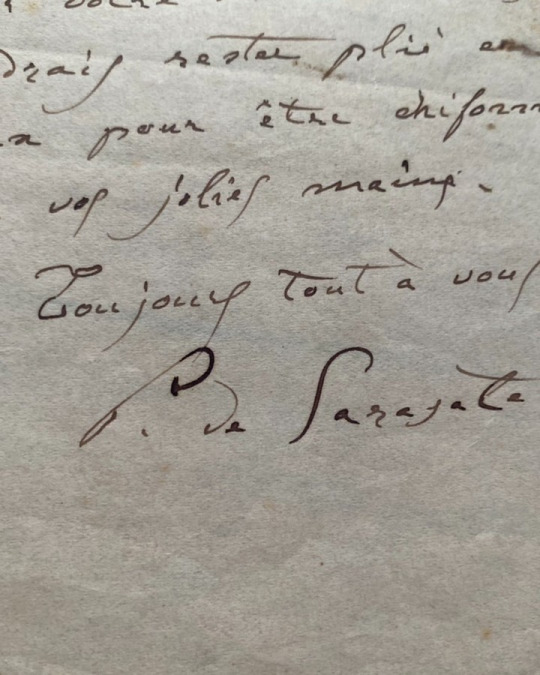 votre
drais rester plié en
pour être chifonn
vos jolies mains.
Toujours tout à vous
P. de Sarasate